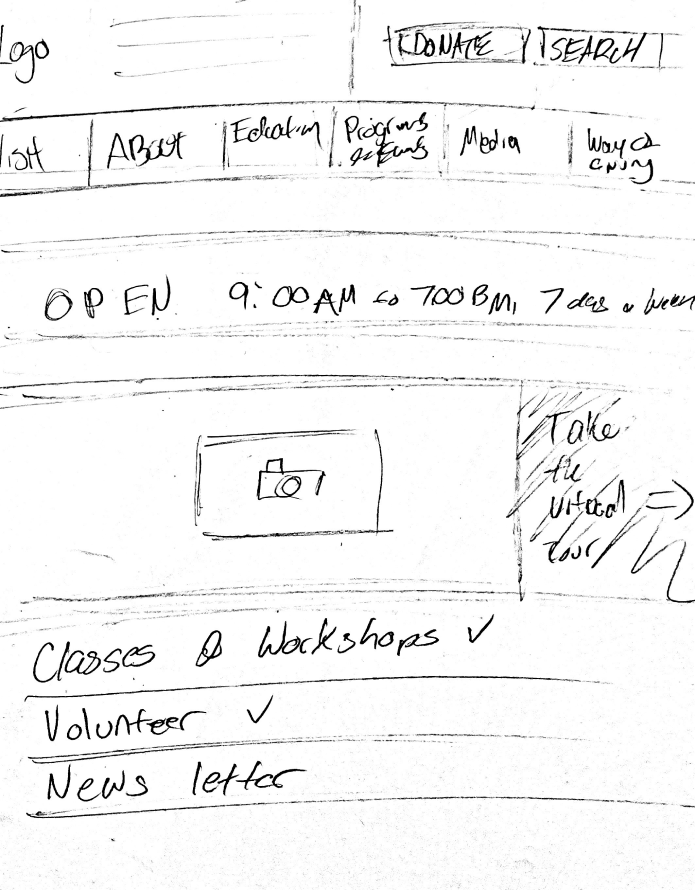 Logo
DONATE
SEARCH
Visit
ABout
Education
Programs
& Events
Media
Ways of
giving
OPEN 9:00 AM to 7:00 PM, 7 days a week
Take
the
virtual
tour
Classes & Workshops ✓
Volunteer ✓
News letter